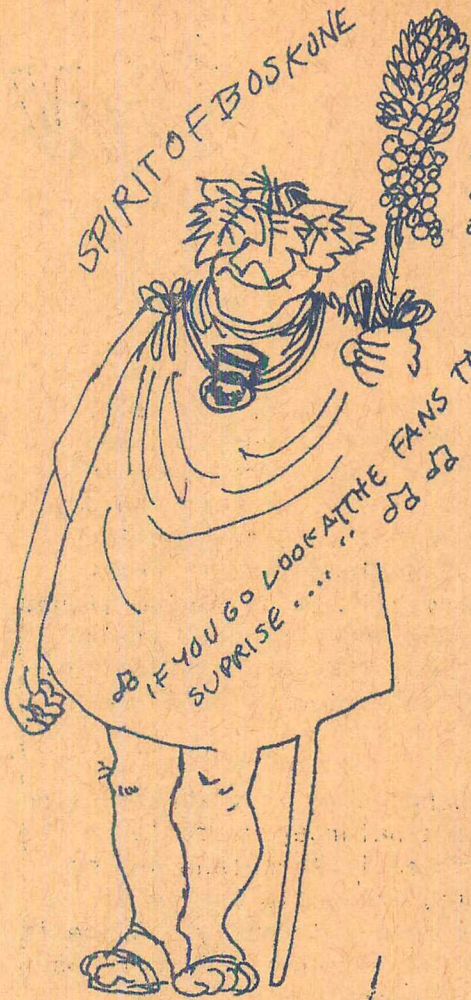 SPIRIT OF BOSKONE
IF YOU GO LOOK AT THE FANS
SUPRISE....